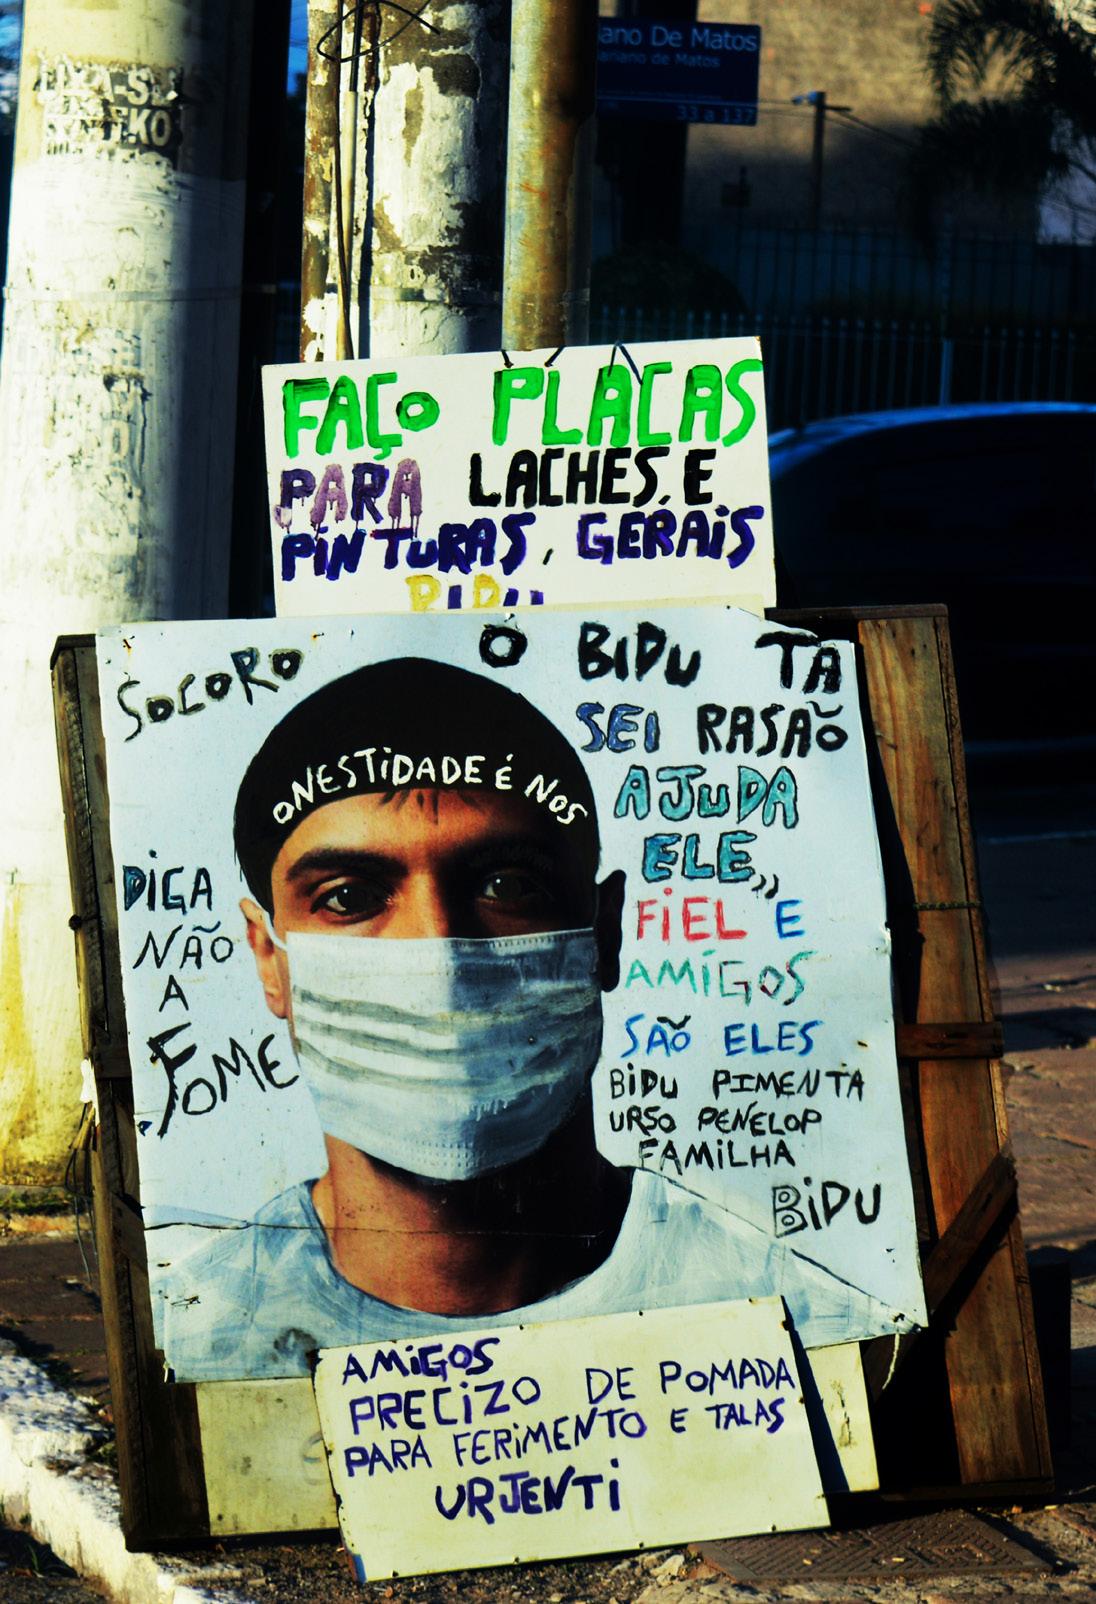 ano De Matos
ariano de Matos
33 a 137
FAÇO PLACAS
PARA LACHES, E
PINTURAS, GERAIS
BIDU
SOCORO
O BIDU TA
SEI RASAÕ
AJUDA
ELE,,
FIEL E
AMIGOS
SAÕ ELES
BIDU PIMENTA
URSO PENELOP
FAMILHA
BIDU
ONESTIDADE É NOS
DIGA
NÃO
A
FOME
AMIGOS
PRECIZO DE POMADA
PARA FERIMENTO E TALAS
URJENTI